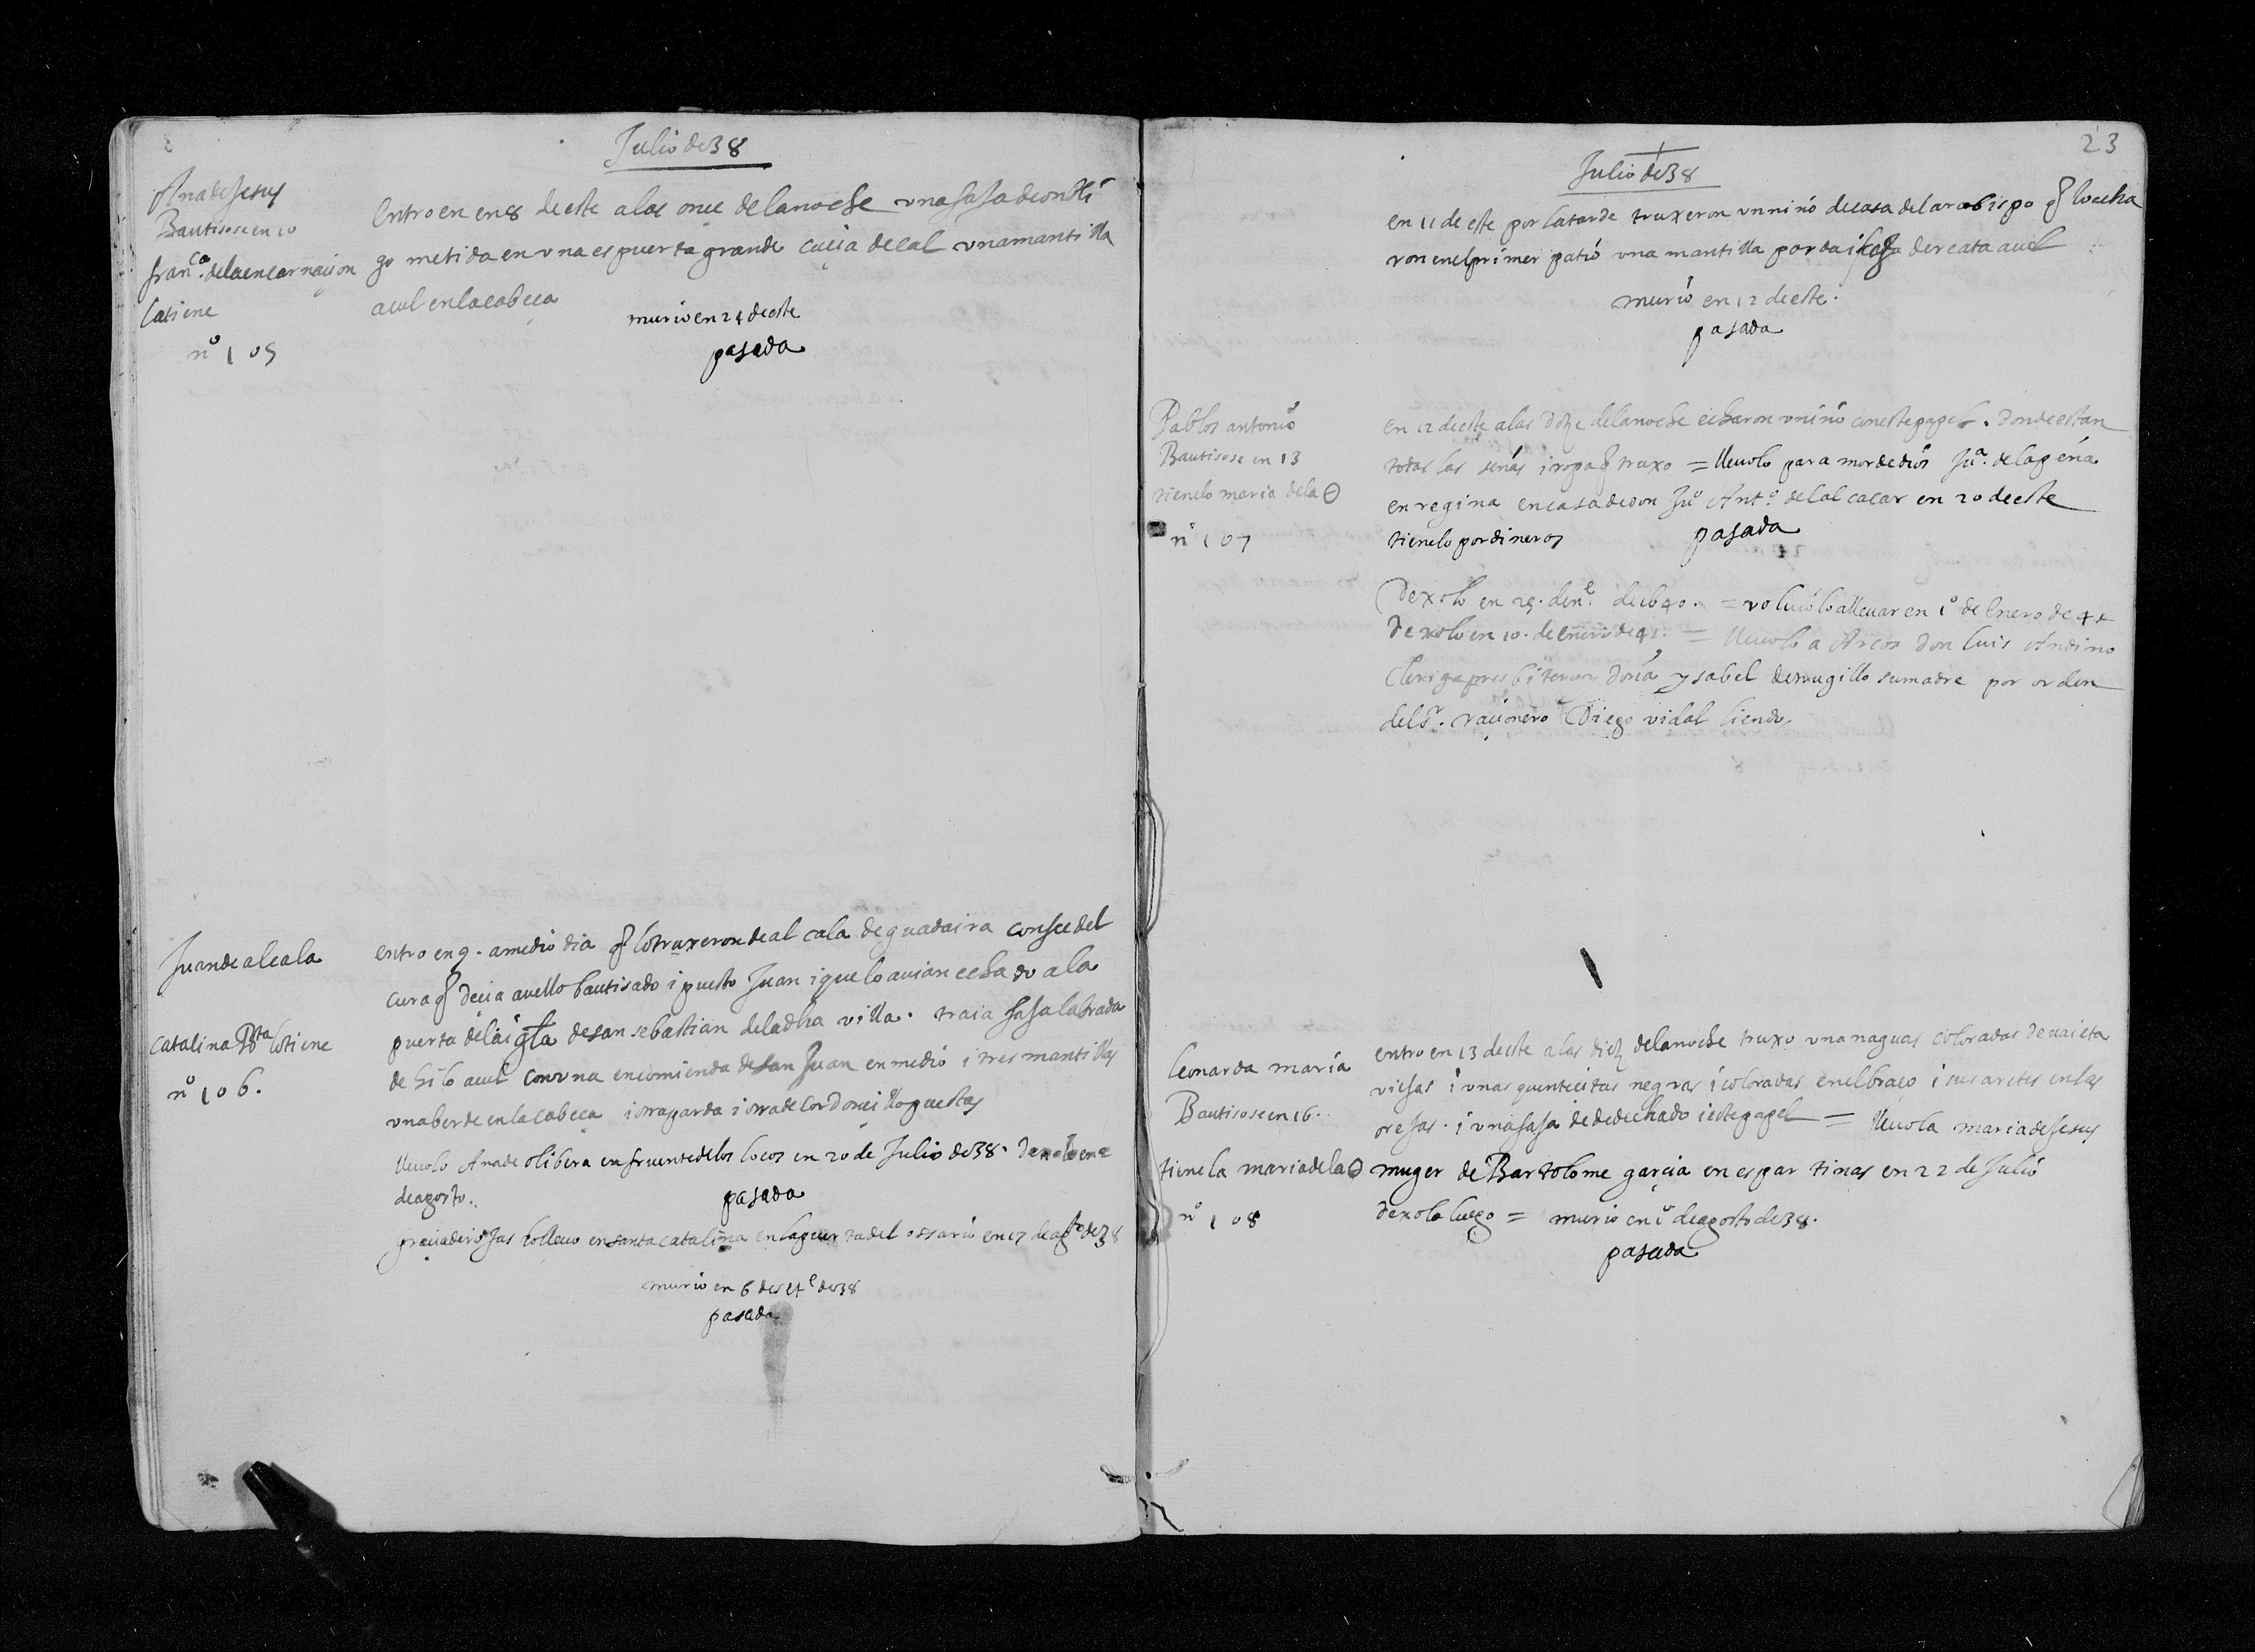 Julio de 38
Ana de Jesus
Bautisose en 10
fran.ca de la encarnaçion
la tiene
nº 105
Entro en en 8 de este a las once de la noche una faxa de ontli
go metida en una espuerta grande sucia de cal una mantilla
acul en la cabeça
murio en 24 de este
pasada
Juan de alcala
Catalina Bta lo tiene
nº 106.
entro en 9. a medio dia q lo truxeron de alcala de guadaira con fee del
cura q decia avello bautisado i puesto Juan i que lo avian echado a la
puerta de la igla de san sebastian de la dha villa. traia faja labrada
de hilo acul con una encomienda de san Juan en medio i tres mantillas
una berde en la cabeça i otra parda i otra de cordoncillo puestas
llevolo Ana de olibera en fruente de los locos en 20 de Julio de 38. dexolo en 2
de agosto.
pasada
lo llevo en santa catalina en la puerta del ossario en 17 de agto de 38
murio en 6 de sete de 38
pasada
23
Julio de 38
en 11 de este por la tarde truxeron un niño de casa del arobispo q lo echa
ron en el primer patio una mantilla parda i de reata acul
murio en 12 de este.
pasada
Pablos antonio
Bautisose en 13
tienelo maria de la O
nº 107
en 12 de este a las doze de la noche echaron un niño con este papel. donde estan
todas las señas i ropa q truxo = llevolo para mor de dios Jua. de la peña
en regina en casa de don Juº Antº del alcaçar en 20 de este
tienelo por dineros
pasada
Dexolo en 25. de ne. de 640. = volviolo a llevar en 1º de Enero de 41
Dexolo en 10. de enero de 41. = llevolo a Arcos Don luis Andino
Clerigo presbitero i doña ysabel de su madre por orden
del Sr. racionero Diego vidal liendo.
leonarda maria
Bautisose en 16.
tienela maria de la O
nº 108
entro en 13 de este a las diez de la noche truxo una naguas coloradas de vaieta
viejas i unas quentecitas negras i coloradas en el braço i sus aretes en las
orejas. i una faja de dedechado i este papel = llevola maria de Jesus
muger de Bartolome garçia en espartinas en 22 de Julio
dexola luego = murio en 1º de agosto de 38.
pasada